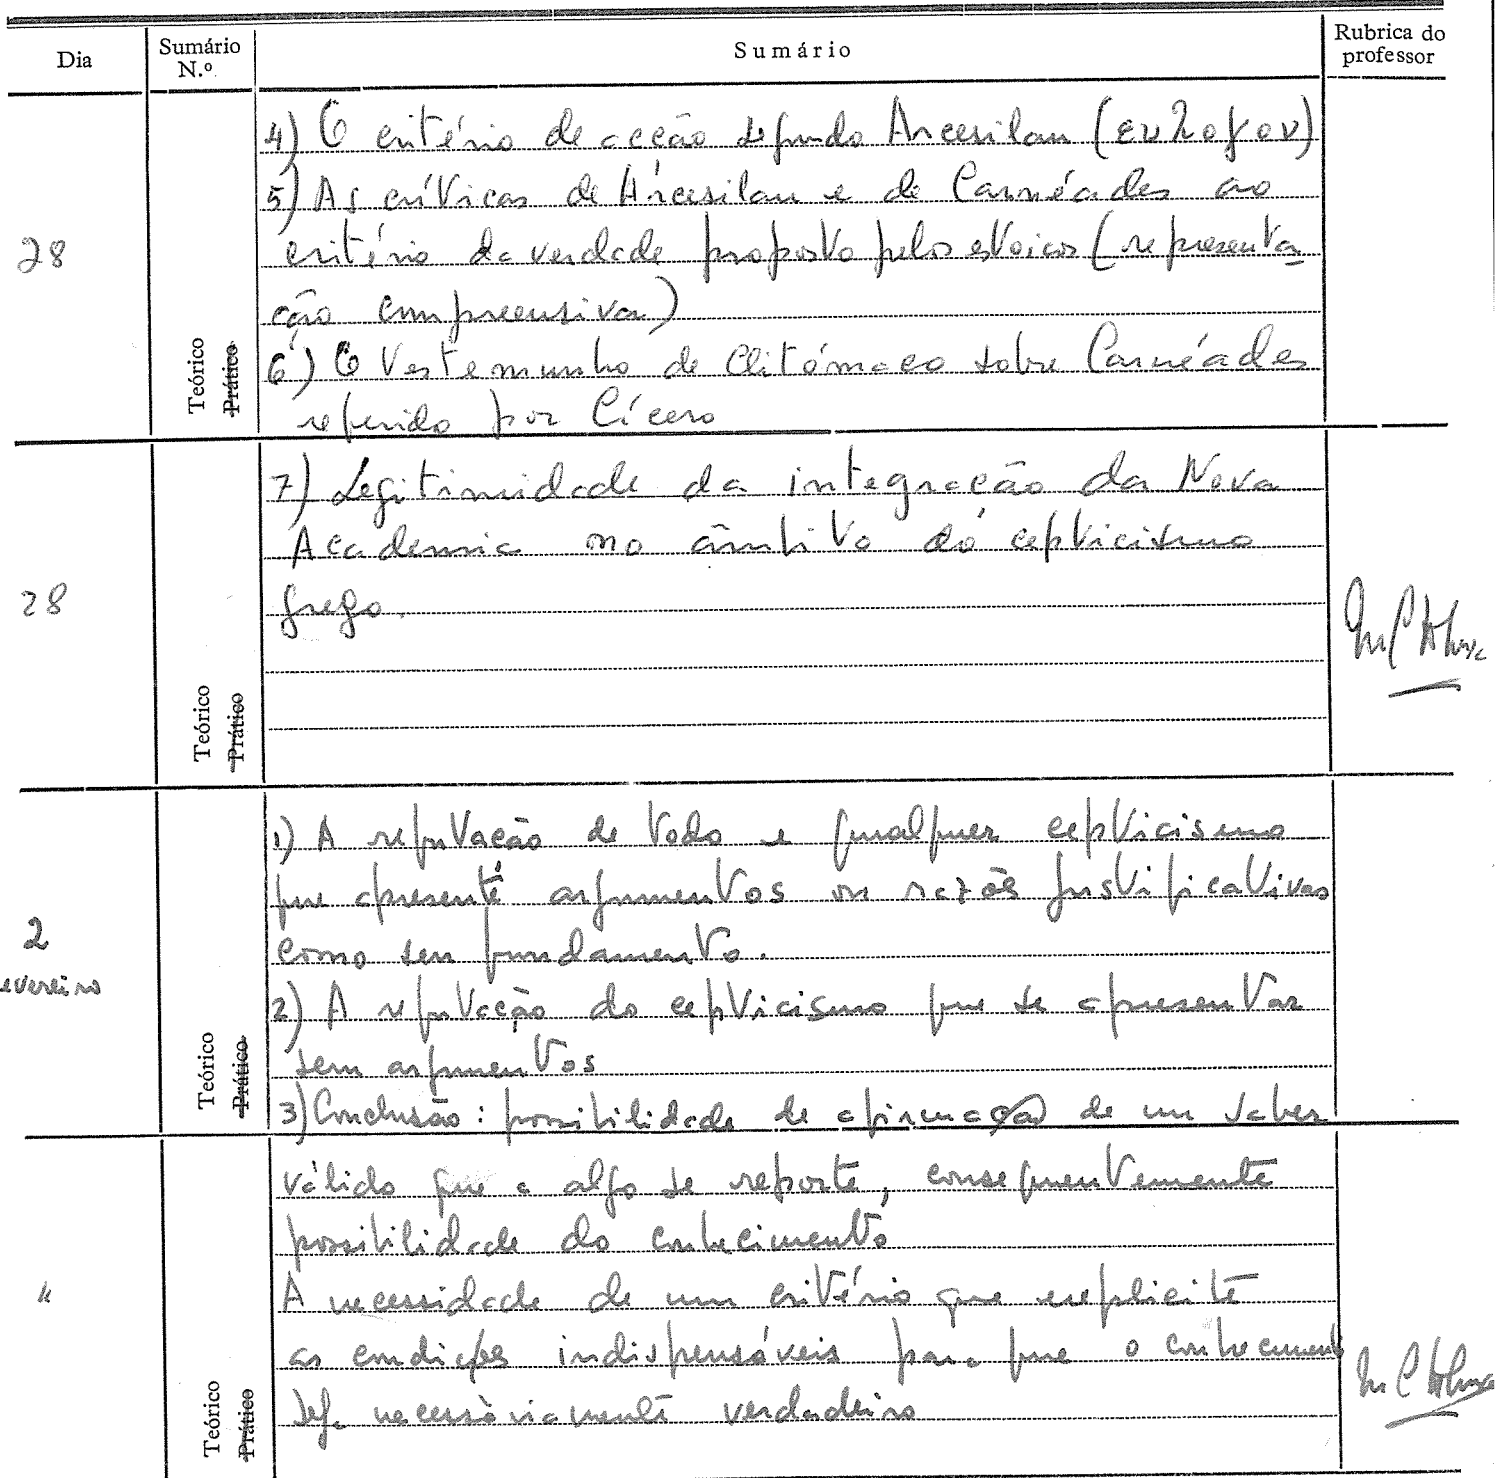 Dia
Sumário N.º
Sumário
Rubrica do professor
28
Teórico
Prático
4) O critério de acção segundo Arcesilau (ευλογον)
5) As críticas de Arcesilau e de Carnéades ao
critério da verdade proposto pelos estoicos (representa
ção compreensiva)
6) O testemunho de Clitómaco sobre Carnéades
referido por Cícero
28
Teórico
Prático
7) Legitimidade da integração da Nova
Academia no âmbito do cepticismo
grego.
2
evereiro
Teórico
Prático
1) A refutação de todo e qualquer cepticismo
que apresente argumentos ou razões justificativas
como seu fundamento.
2) A refutação do cepticismo que se apresentar
sem argumentos
3) Conclusão: possibilidade de afirmação de um saber
"
Teórico
Prático
válido que a algo se reporte, consequentemente
possibilidade do conhecimento
A necessidade de um critério que explicite
as condições indispensáveis para que o conhecimento
seja necessàriamente verdadeiro